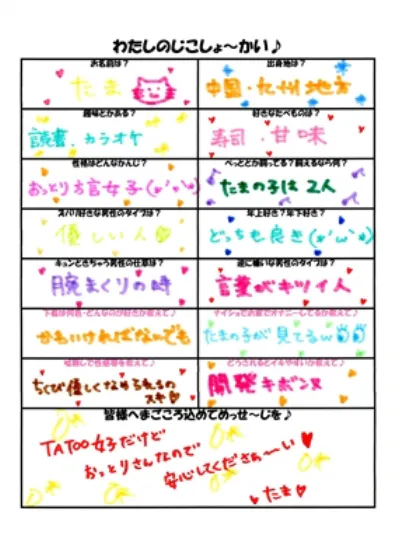 わたしのじこしょ〜かい♪
お名前は？
たま
出身地は？
中国・九州地方
趣味とかある？
読書、カラオケ
好きなたべものは？
寿司、甘味
性格はどんなかんじ？
おっとり方言女子(*'▽'*)
ぺっととか飼ってる？飼えるなら何？
たまの子は2人
ズバリ好きな男性のタイプは？
優しい人
年上好き？年下好き？
どっちも良き(*'ω'*)
キュンときちゃう男性の仕草は？
腕まくりの時
逆に嫌いな男性のタイプは？
言葉がキツイ人
かわいければなんでも
たまの子が見てるw
ちくび優しくなめられるの
スキ
開発キボンヌ
皆様へまごころ込めてめっせ〜じを♪
TATOO女子だけど
おっとりさんなので
安心してくださぁ〜い♥
♥たま♥